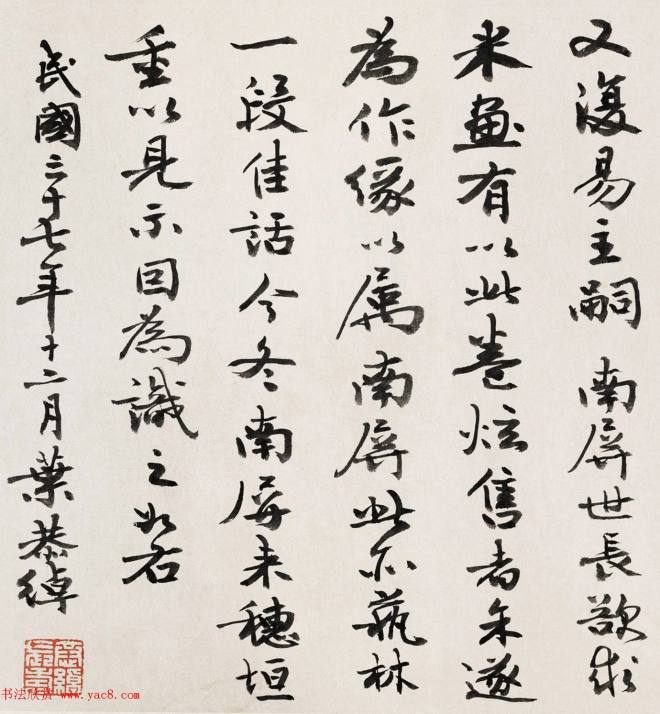 又復易主嗣 南屏世長欲求
米畫有以此卷炫售者余遂
為作緣以屬南屏此亦藝林
一段佳話今冬南屏来穗垣
重以見示因為識之如右
民國三十七年十二月葉恭綽
书法欣赏 www.yac8.com